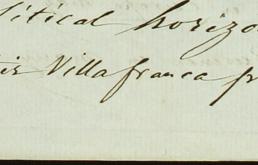 litical horizo
is Villafranca pr